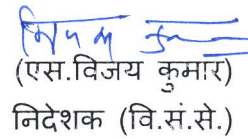 (एस.विजय कुमार)
निदेशक (वि.सं.से.)